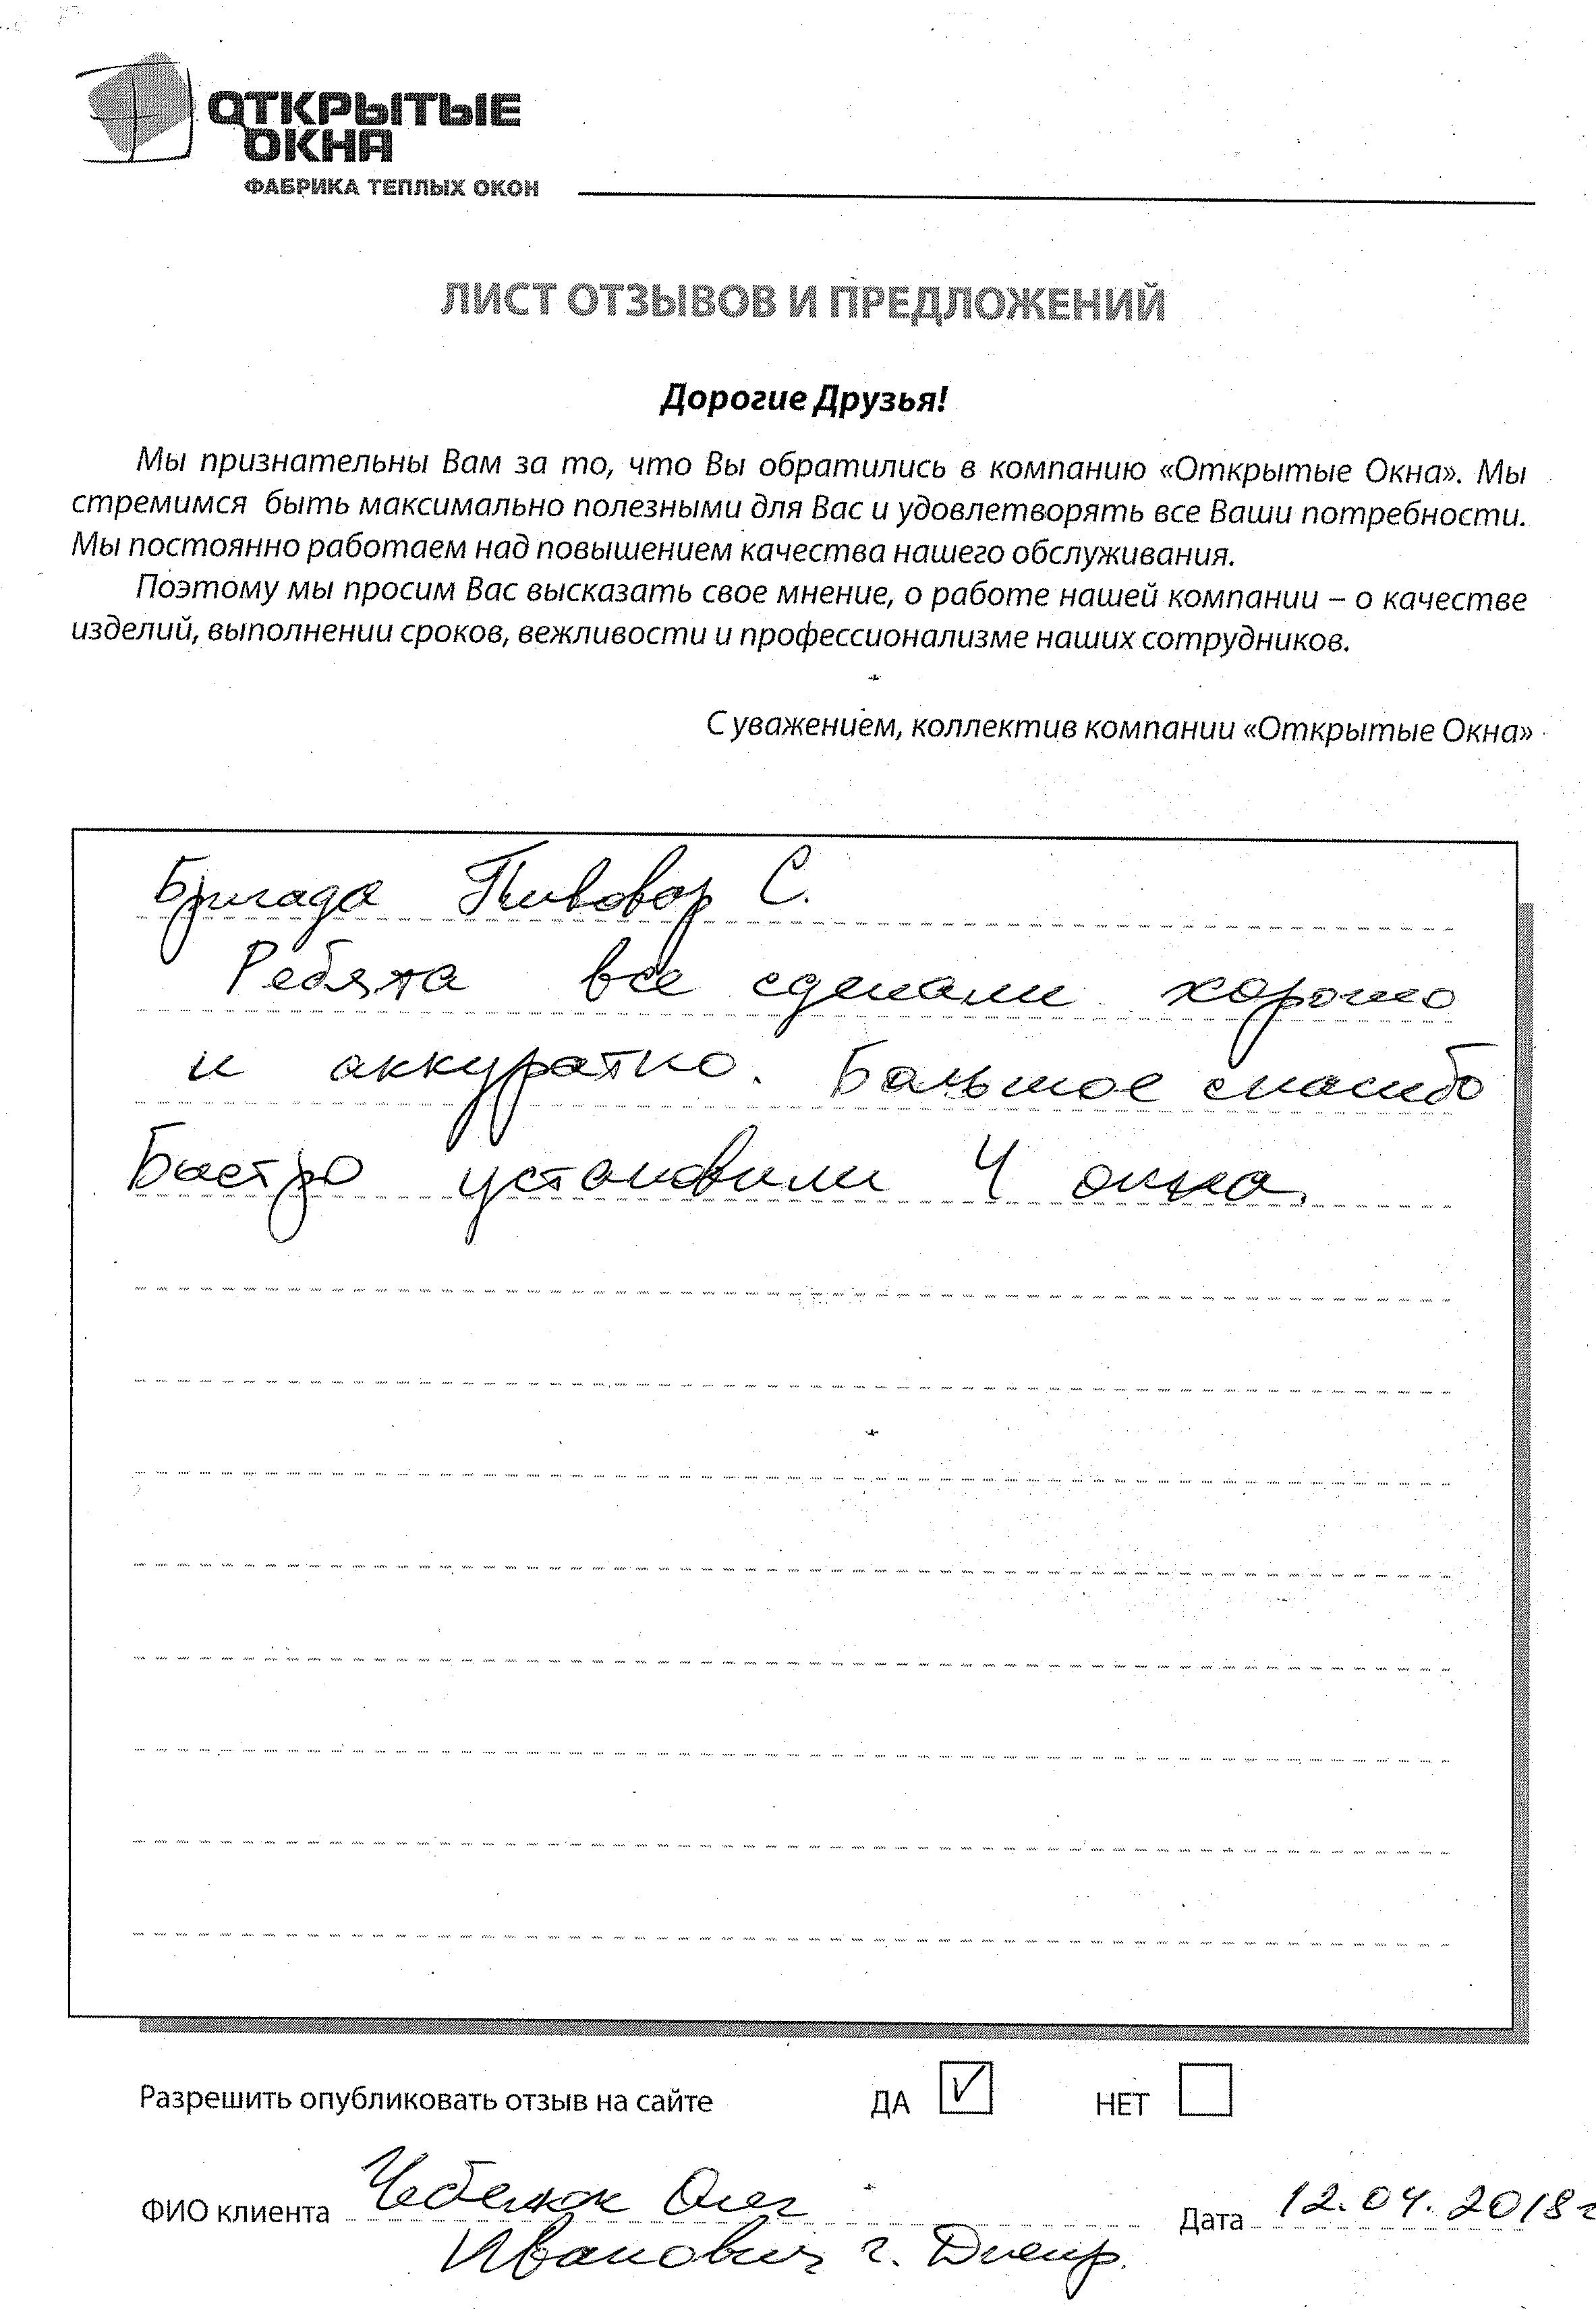 ОТКРЫТЫЕ
ОКНА
ФАБРИКА ТЕПЛЫХ ОКОН
ЛИСТ ОТЗЫВОВ И ПРЕДЛОЖЕНИЙ
Дорогие Друзья!
Мы признательны Вам за то, что Вы обратились в компанию «Открытые Окна». Мы
стремимся быть максимально полезными для Вас и удовлетворять все Ваши потребности.
Мы постоянно работаем над повышением качества нашего обслуживания.
Поэтому мы просим Вас высказать свое мнение, о работе нашей компании – о качестве
изделий, выполнении сроков, вежливости и профессионализме наших сотрудников.
С уважением, коллектив компании «Открытые Окна»
Бригада Пивовар С.
Ребята все сделали хорошо
и аккуратно. Большое спасибо
Быстро установили 4 окна.
Разрешить опубликовать отзыв на сайте ДА НЕТ
ФИО клиента Олег Дата 12.04.2018г
Иванович г. Днепр.